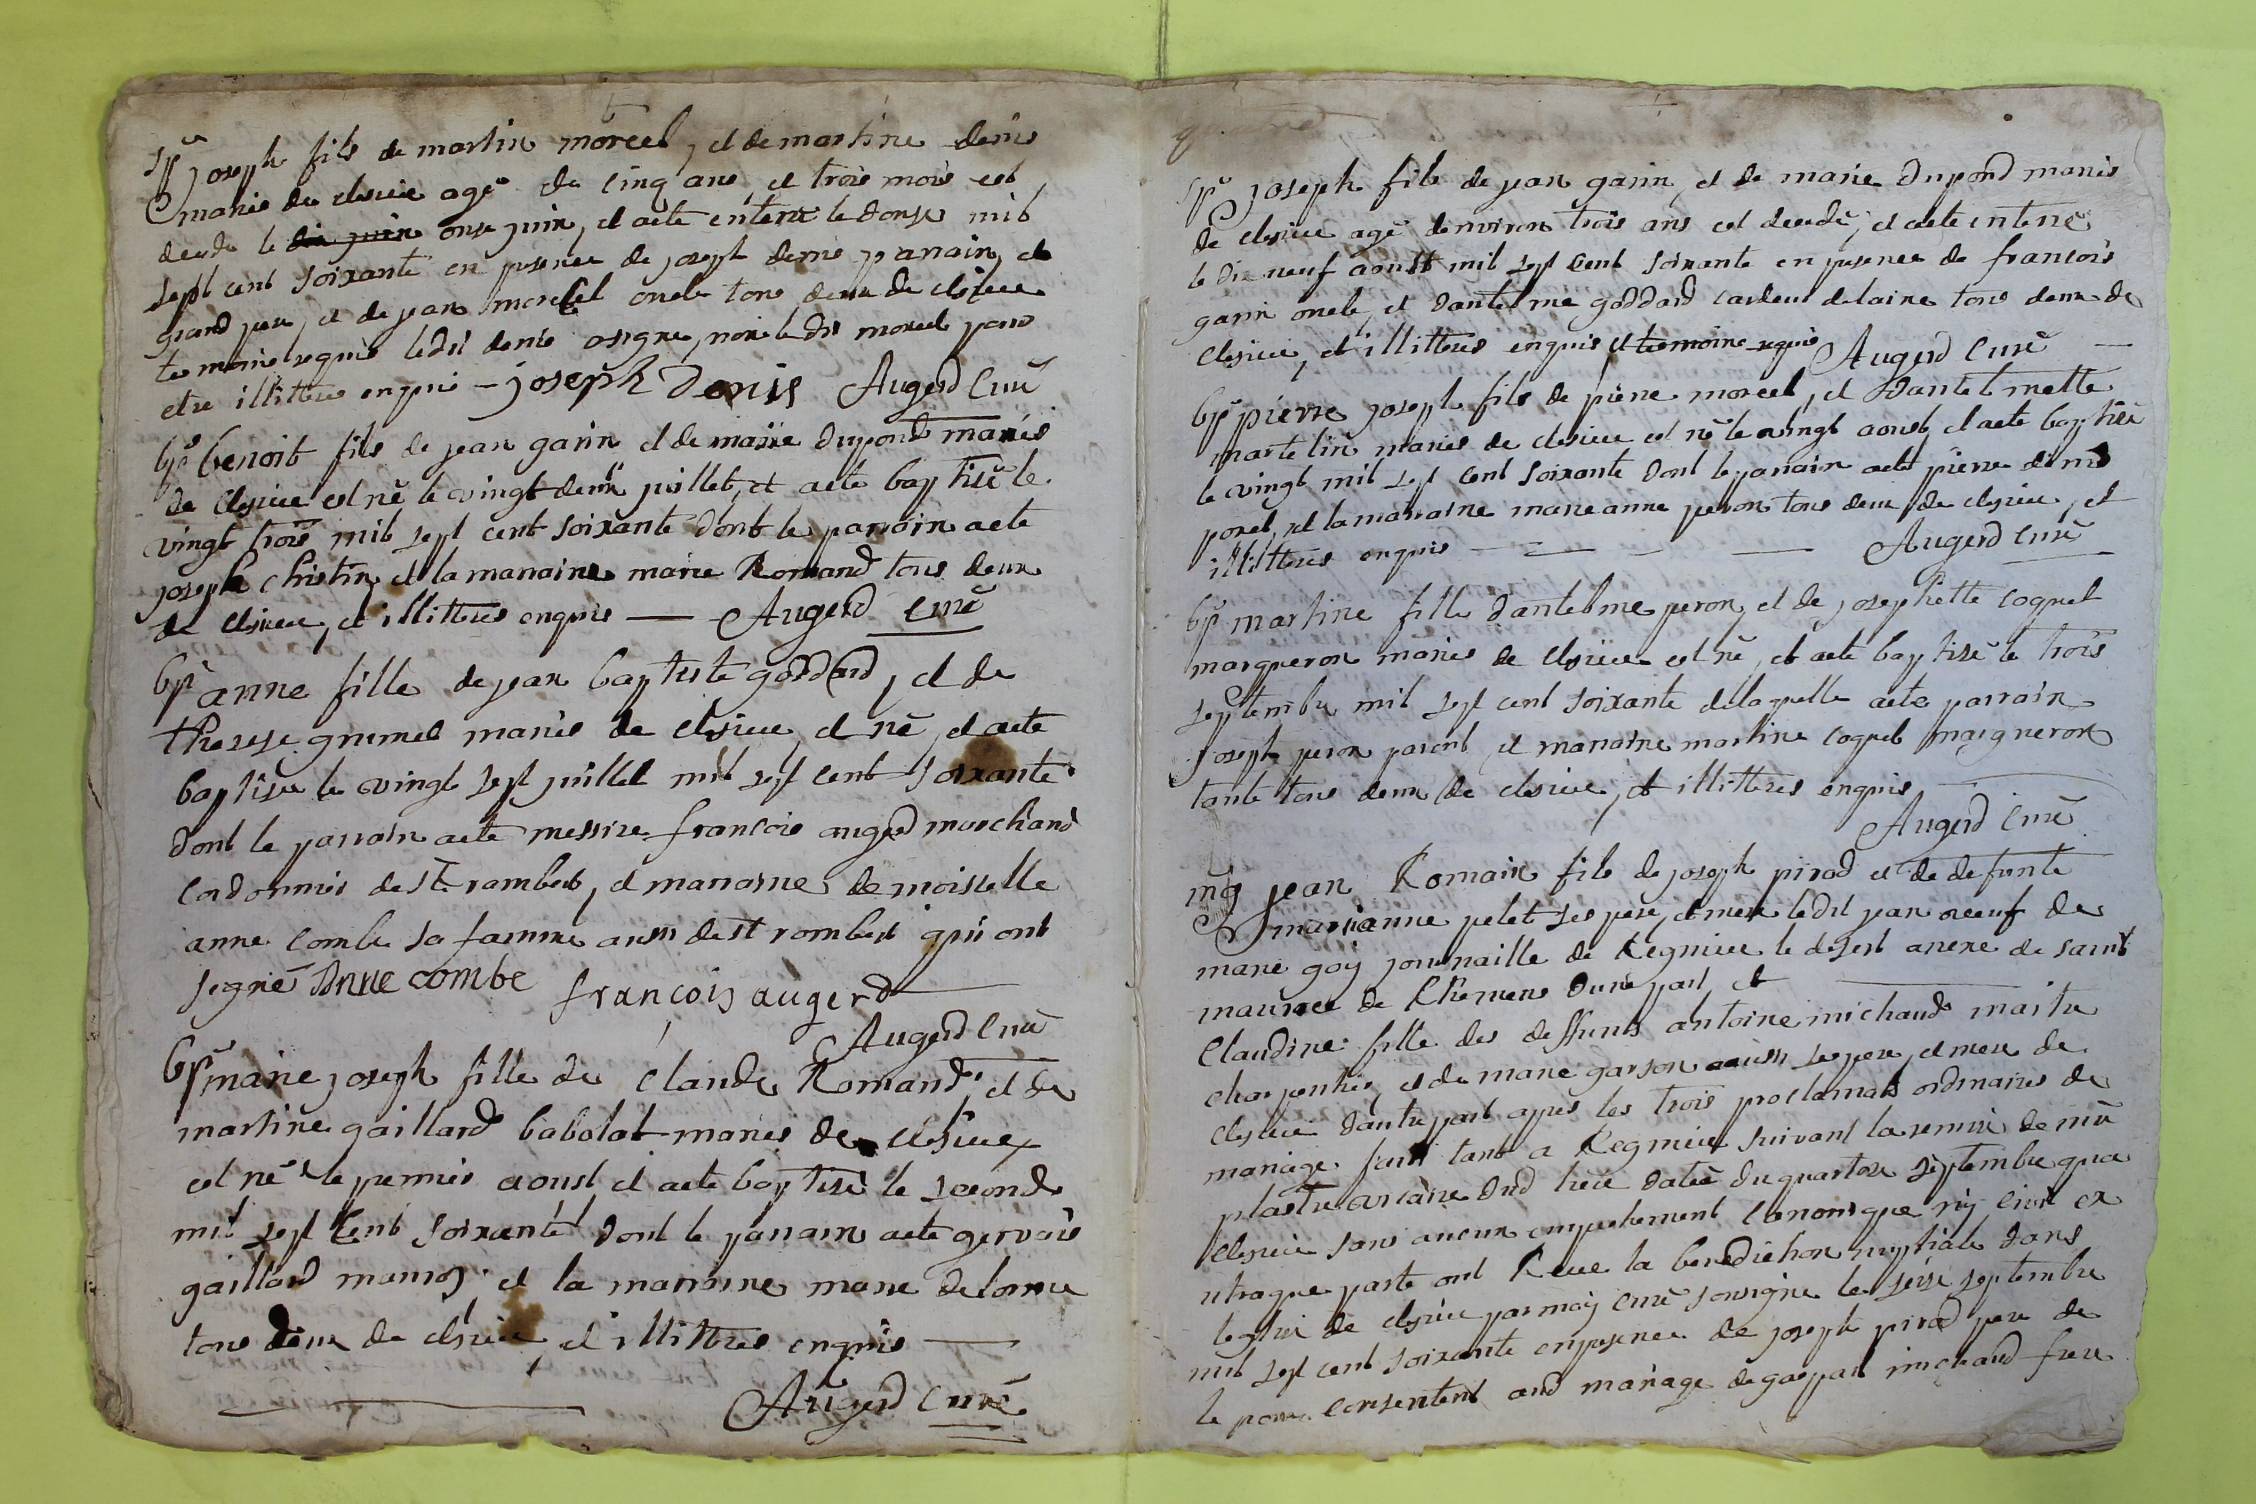 spr joseph fils de martin morcel, et de martine denis
mariés de cleisieu agé de cinq ans et trois mois est
decede le dix juin onze juin, et aeté enterré le donze mil
sept cent soixante en presence de joseph denis parrain, et
grand pere, et de jean morcel oncle tous deux de cleisieu
temoins requis ledit denis a signe, non ledit morcel pour
etre illittere enquis — joseph Denis Augerd curé
bpt benoit fils de jean garin et de marie dupond mariés
de cleisieu est né le vingt deux juillet, et aeté baptisé le
vingt trois mil sept cent soixante dont le parrain aeté
joseph christin et la marraine marie Romand tous deux
de cleisieu, et illitterés enquis — Augerd curé
bpt anne fille de jean baptiste goddard, et de
therese grumet mariés de cleisieu, et né, et aeté
baptisée le vingt sept juillet mil sept cent soixante
dont le parrain aeté messire francois augerd marchand
cordonnier de st rambert, et marraine demoiselle
anne combe sa famme aussi de st rambert qui ont
signé Anne combe françois augerd
Augerd curé
bpt marie joseph fille de claude Romand, et de
martine gaillard babolat mariés de cleisieux
est né le premier aoust et aeté baptisé le second
mil sept cent soixante dont le parrain aeté gervais
gaillard et la marraine marie delorme
tous deux de cleisieu, et illittres enquis —
Augerd curé
spr joseph fils de jean garin, et de marie dupond mariés
de cleisieu agé denviron trois ans est decedé, et aeté enterré
le dix neuf aoust mil sept cent soixante en presence de francois
garin oncle, et dantelme goddard cardeur de laine tous deux de
cleisieu, et illitterés enquis et temoins requis Augerd curé —
bpt pierre joseph fils de pierre morcel, et dantelmette
martelin mariés de cleisieu est né le vingt aoust, et aeté baptisé
le vingt mil sept cent soixante dont le parrain aeté pierre denis
ponel, et la marraine marie anne peron tous deux de cleisieu, et
illitterés enquis — Augerd curé
bpt martine fille dantelme peron, et de josephette coquet
marqueron mariés de cleisieu est né, et aeté baptisé le trois
septembre mil sept cent soixante delaquelle aeté parrain
joseph peron parent, et marraine martine coquet maigneron
tante tous deux de cleisieu, et illitteres enquis
Augerd curé
mg jean Romain fils de joseph pirod et de defunte
marianne pelet ses pere, et mere ledit jean veuf de
marie goy journaille de Regnieu le desert anexe de saint
maurice de Rhemens dune part, et
claudine fille des deffunts antoine michaud maitre
charpentier, et de marie garson aussi ses pere, et mere de
cleisieu dautre part apres les trois proclamats ordinaires de
mariage fais tant a Regnieu suivant la remise de mre
plastre vicaire dud lieu datée du quatorze septembre qua
cleisieu sans aucun empechement canonique ny civil ex
utraque parte ont Receu la benediction nuptiale dans
leglise de cleisieu par moy curé sousigne le seize septembre
mil sept cent soixante en presence de joseph pirod pere de
le poux consentent aud mariage de gaspard michaud frere